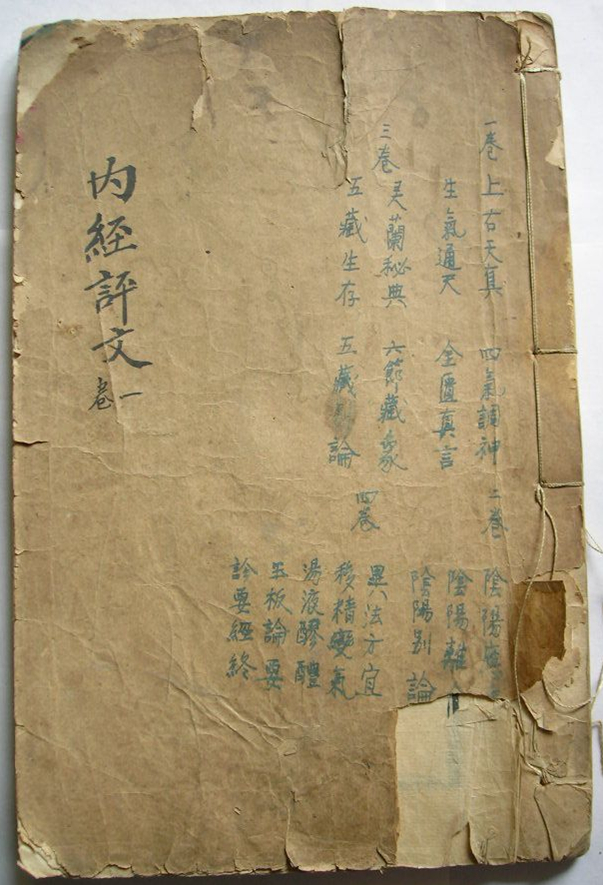 一卷 上古天真 四氣調神 二卷 陰陽應
生氣通天 金匱真言 陰陽離
陰陽别論
三卷
灵蘭秘典 六節藏象
五藏生存 五藏别論
四卷
異法方宜
移精變氣
湯液醪醴
玉板論要
診要經終
内經評文
卷一